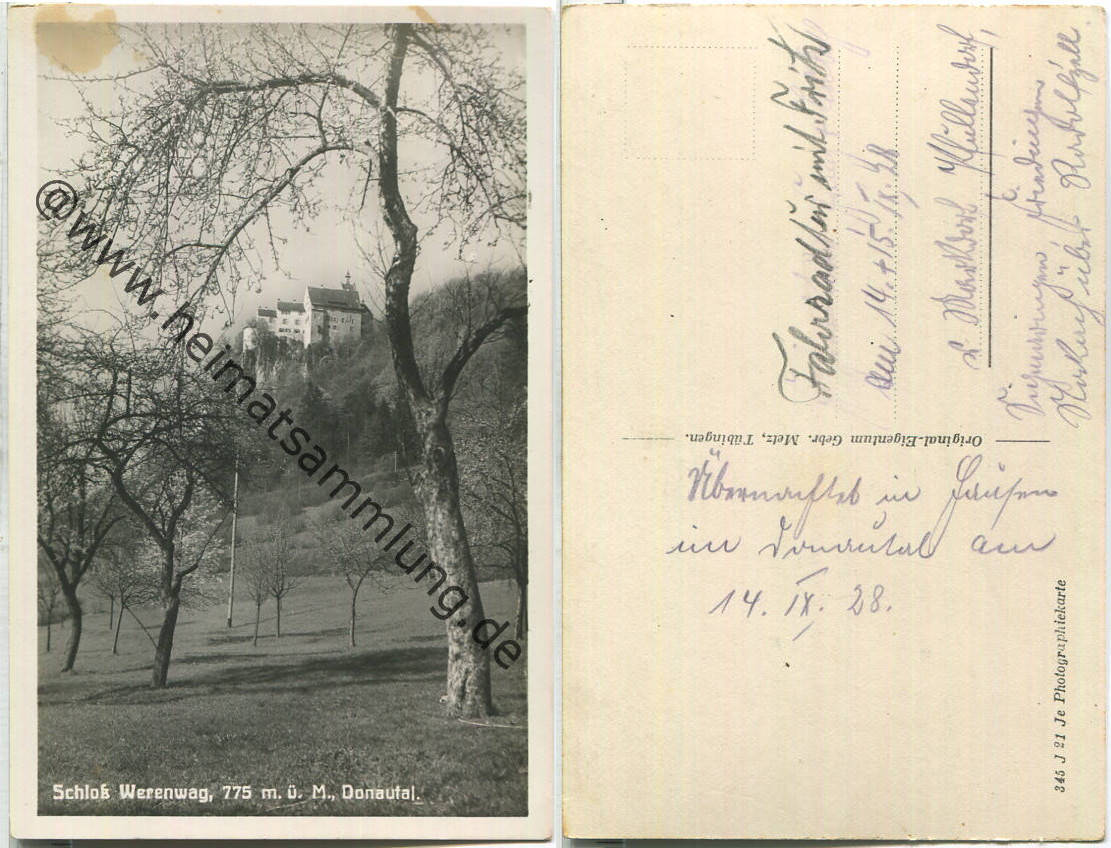 @www.heimatsammlung.de
Schloß Werenwag, 775 m. ü. M., Donautal.
Fahrradtour mit Fritz
am 14. + 15. IX. 28
v. Markdorf, Pfullendorf,
Sigmaringen
Radolfzell
Original-Eigentum Gebr. Metz, Tübingen.
Übernachtet in Hausen
im Donautal am
14. IX. 28.
345 J 21 Je Photographiekarte